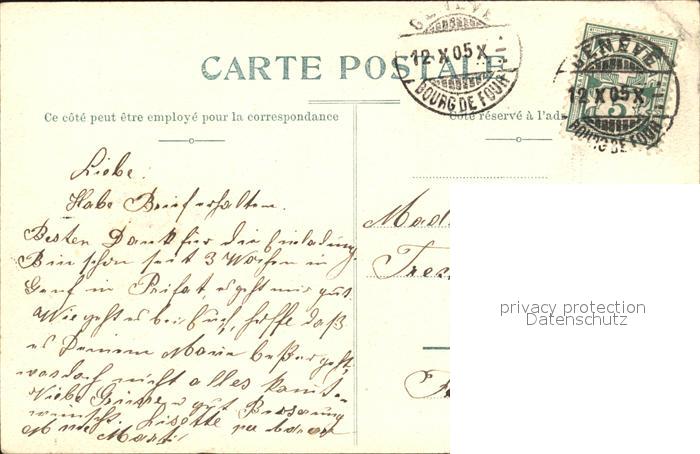 CARTE POSTALE
GENÈVE
12 X 05 X
BOURG DE FOUR
GENÈVE
12 X 05 X
BOURG DE FOUR
5
Ce côté peut être employé pour la correspondance
Côté réservé à l'ad
Liebe.
Habe Brief erhalten.
Besten Dank für die Einladung
Bin schon seit 3 Wochen in
Genf in Privat, es geht mir gut.
Wie geht es bei Euch, hoffe daß
es Deinem Marie beßer geht,
nicht alles
Liebe Grüsse u gut Besserung
wünscht Lisette
Marti
Mad
Tres
privacy protection
Datenschutz